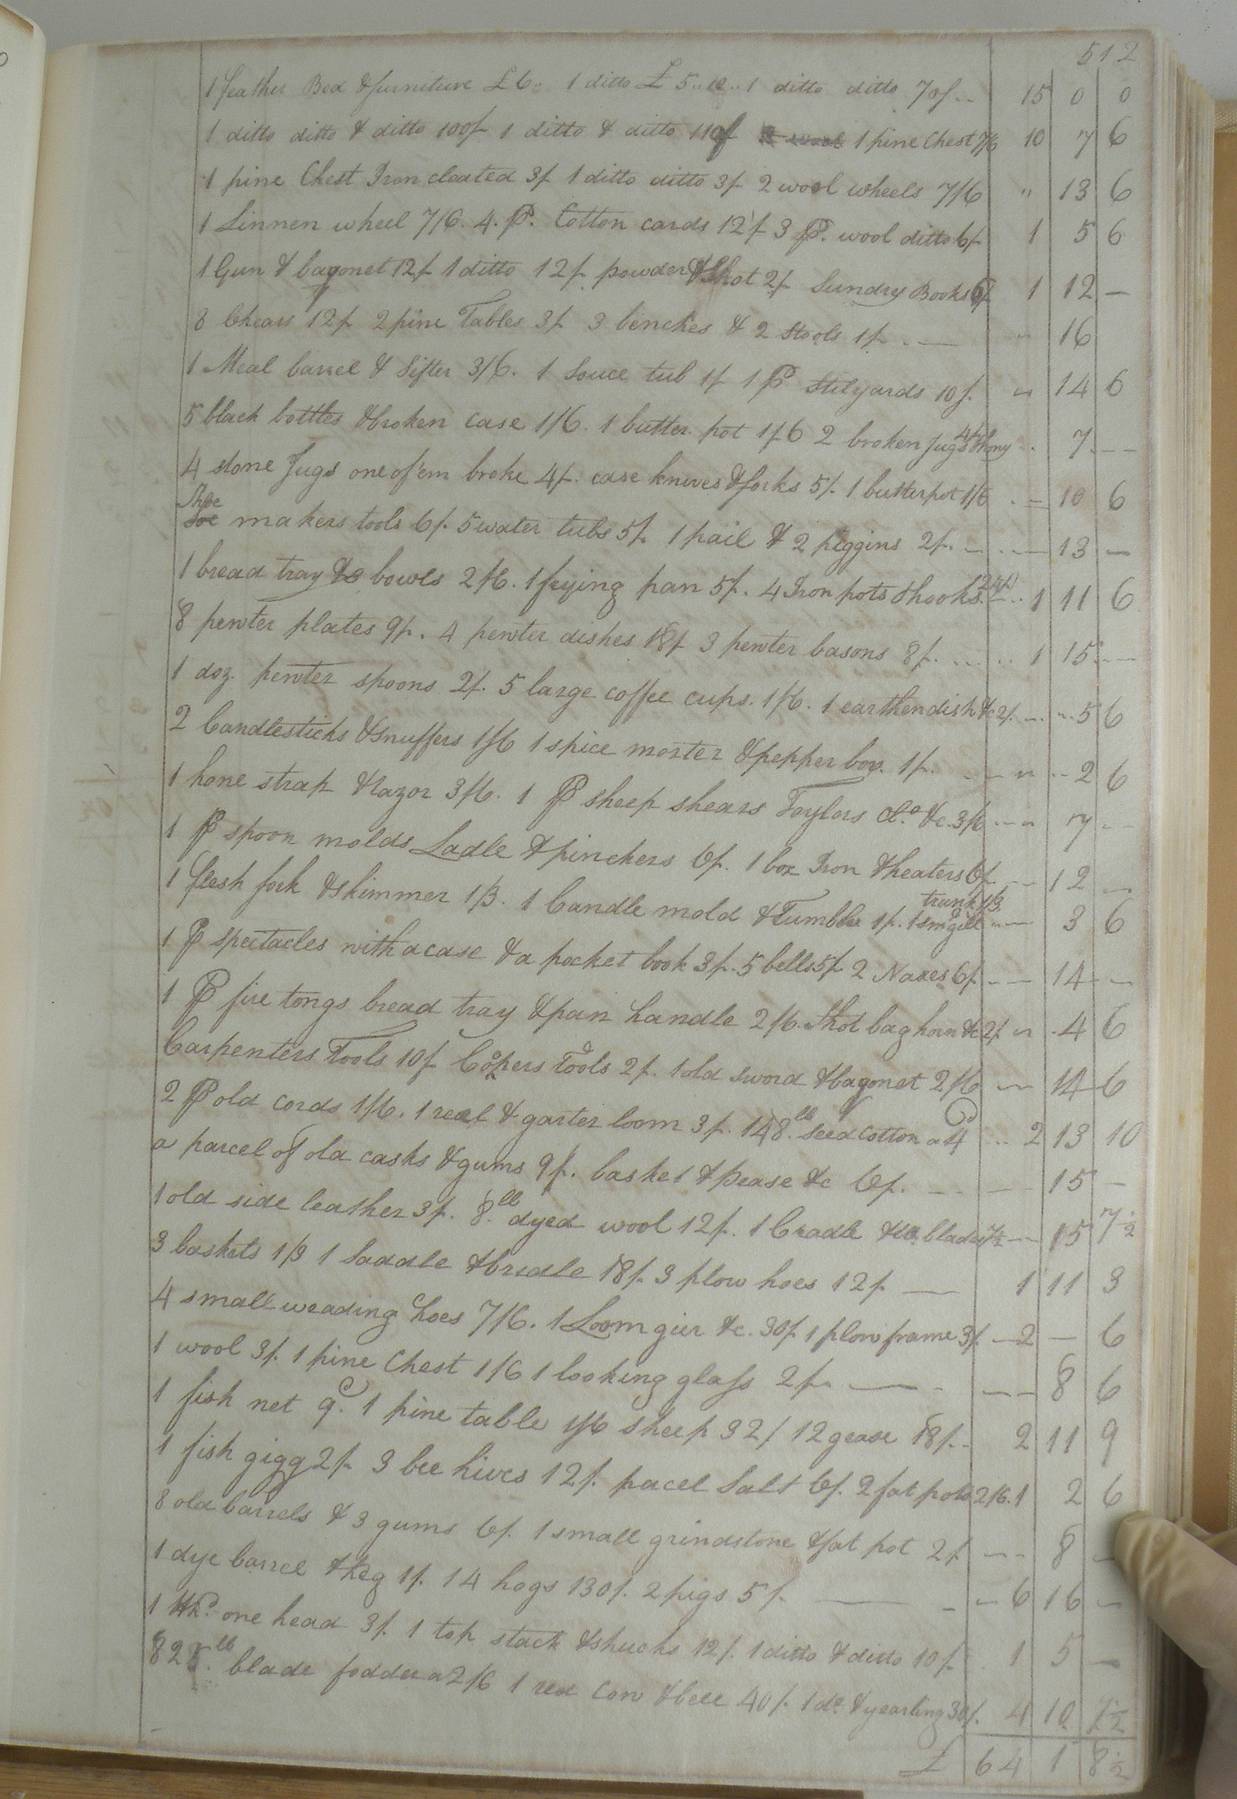 512
1 feather Bed & furniture £6. 1 ditto £5..10.. 1 ditto ditto 70/. 15 0 0
1 ditto ditto & ditto 100/ 1 ditto & ditto 110/ 1 pine Chest 7/6 10 7 6
1 pine Chest Iron cleated 3/ 1 ditto ditto 3/ 2 wool wheels 7/6 " 13 6
1 Linnen wheel 7/6. 4. P. Cotton cards 12/ 3 P. wool ditto 6/ 1 5 6
1 Gun & bayonet 12/ 1 ditto 12/ powder & Shot 2/ Sundry Books 6/ 1 12 —
8 Chears 12/ 2 pine Tables 3/ 3 benches & 2 stools 1/. — " 16
1 Meal barrel & Sifter 3/6. 1 Souce tub 1/ 1 P Stilyards 10/. " 14 6
5 black bottles & broken case 1/6. 1 butter pot 1/6 2 broken Jugs & hony 4/ .. 7 —
4 stone Jugs one of em broke 4/. case knives & forks 5/. 1 butter pot 1/6 — 10 6
Shoe makers tools 6/. 5 water tubs 5/. 1 pail & 2 piggins 2/. — 13 —
1 bread tray & bowls 2/6. 1 frying pan 5/. 4 Iron pots & hooks 24/ 1 11 6
8 pewter plates 9/. 4 pewter dishes 18/ 3 pewter basons 8/. .... 1 15 —
1 doz. pewter spoons 2/. 5 large coffee cups. 1/6. 1 earthen dish &c 2/. — " 5 6
2 Candlesticks & snuffers 1/6 1 spice morter & pepper box. 1/. — " 2 6
1 hone strap & razor 3/6. 1 P sheep shears Taylors do. &c. 3/6 — " 7 —
1 P spoon molds Ladle & pinchers 6/. 1 box Iron & heaters 6/ — 12 —
1 flesh fork & skimmer 1/3. 1 Candle mold & Tumbler 1/. 1 sm gilt trunk 1/3 — 3 6
1 P spectacles with a case & a pocket book 3/. 5 bells 5/ 2 Naxes 6/. — 14 —
1 P fire tongs bread tray & pan handle 2/6. Shot bag horn &c 2/. " 4 6
Carpenters Tools 10/. Coopers Tools 2/. 1 old sword & bagonet 2/6 — 14 6
2 P old cords 1/6. 1 reel & garter loom 3/. 148.lb seed cotton a 4 .. 2 13 10
a parcel of old casks & gums 9/. basket & pease &c 6/. — — 15 —
1 old side leather 3/. 8.lb dyed wool 12/. 1 Cradle & blades 7½ — 15 7½
3 baskets 1/3 1 Saddle & bridle 18/. 3 plow hoes 12/ — 1 11 3
4 small weading hoes 7/6. 1 Loom gier &c. 30/. 1 plow frame 3/. — 2 — 6
1 wool 3/. 1 pine Chest 1/6 1 looking glass 2/. — — 8 6
1 fish net 9d. 1 pine table 1/6 sheep 32/ 12 gease 18/. 2 11 9
1 fish gigg 2/. 3 bee hives 12/. pacel Salt 6/. 2 fat pots 2/6. 1 2 6
8 old barrels & 3 gums 6/. 1 small grindstone & fat pot 2/ — 8 —
1 dye barrel & keg 1/. 14 hogs 130/. 2 pigs 5/. — — 6 16 —
1 Hhd. one head 3/. 1 top stack & shucks 12/. 1 ditto & ditto 10/. . 1 5 —
825.lb blade fodder a 2/6 1 red Cow & bell 40/. 1 do. & yearling 30/. 4 10 7½
£ 64 1 8½